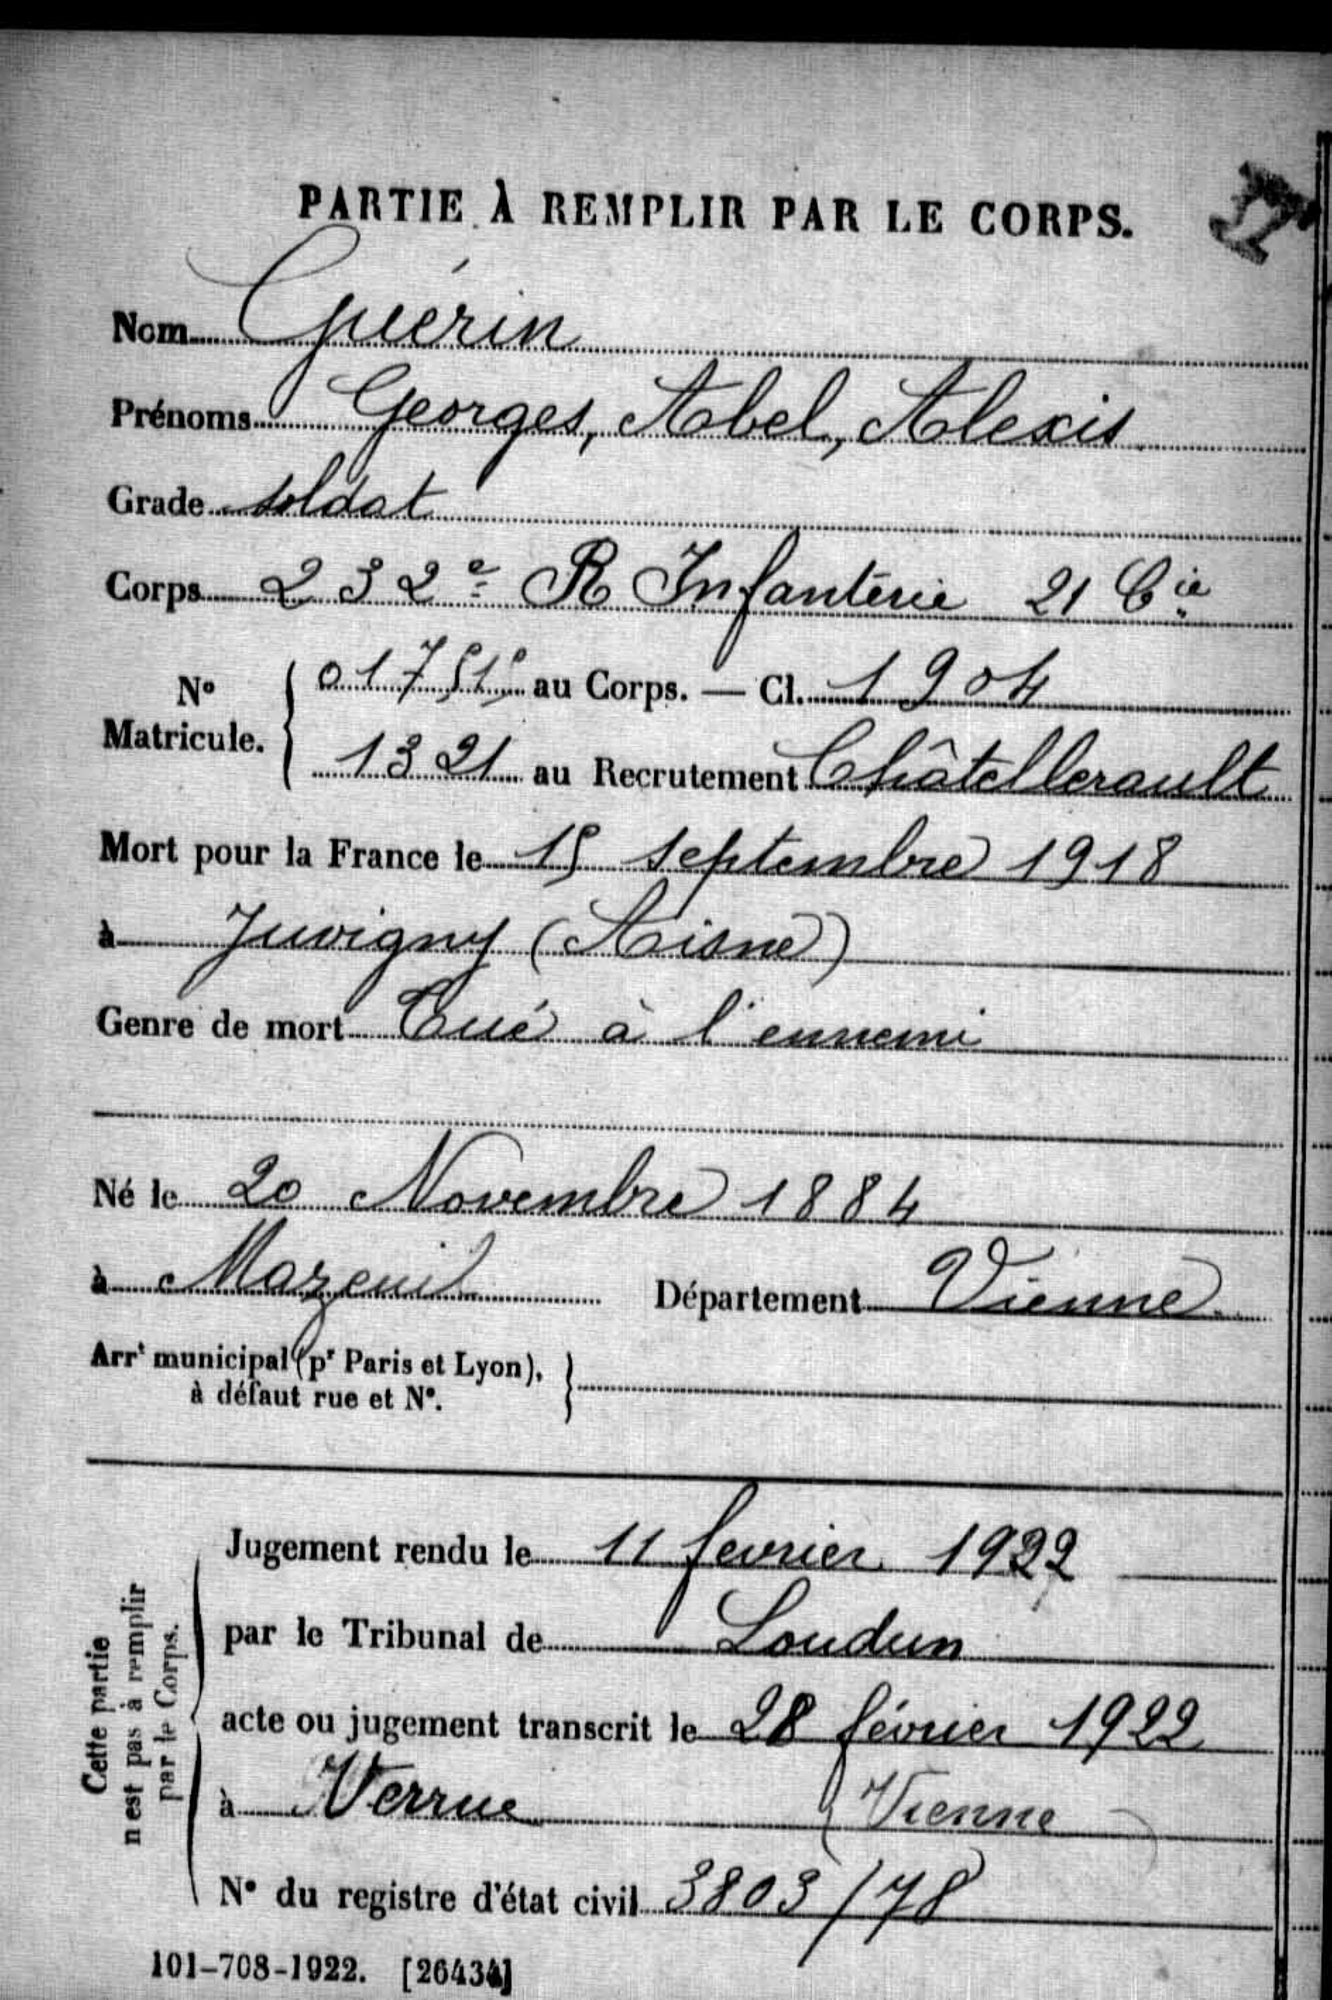 PARTIE À REMPLIR PAR LE CORPS.
Nom Guérin
Prénoms Georges, Abel, Alexis
Grade soldat
Corps 232e R Infanterie 21 Cie
No Matricule. { 01751 au Corps. — Cl. 1904
1321 au Recrutement Châtellerault
Mort pour la France le 15 septembre 1918
à Juvigny (Aisne)
Genre de mort Tué à l'ennemi
Né le 20 Novembre 1884
à Mazeuil Département Vienne
Arrt municipal (pr Paris et Lyon),
à défaut rue et No.
Cette partie
n'est pas à remplir
par le Corps.
Jugement rendu le 11 fevrier 1922
par le Tribunal de Loudun
acte ou jugement transcrit le 28 février 1922
à Verrue Vienne
No du registre d'état civil 3803/78
101-708-1922. [26434]